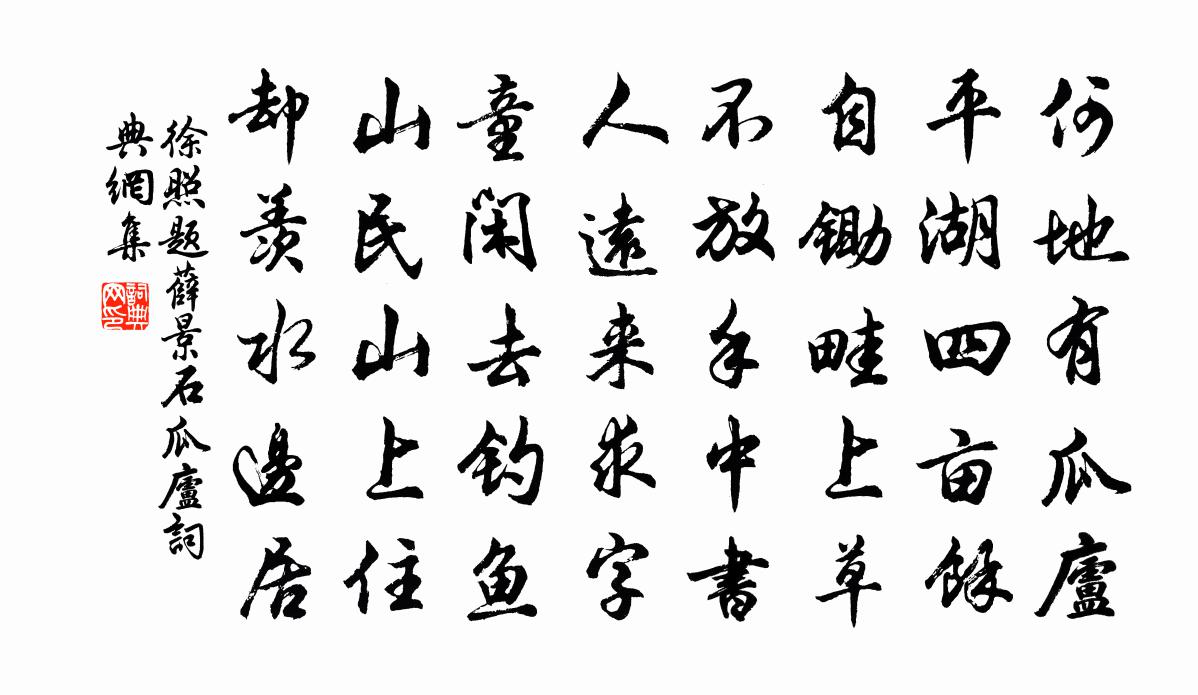 何地有瓜廬
平湖四亩餘
自鋤畦上草
不放手中書
人遠来求字
童閑去钓鱼
山民山上住
却羨水邊居
徐照题薛景石瓜廬詞
典網集
詞典网印